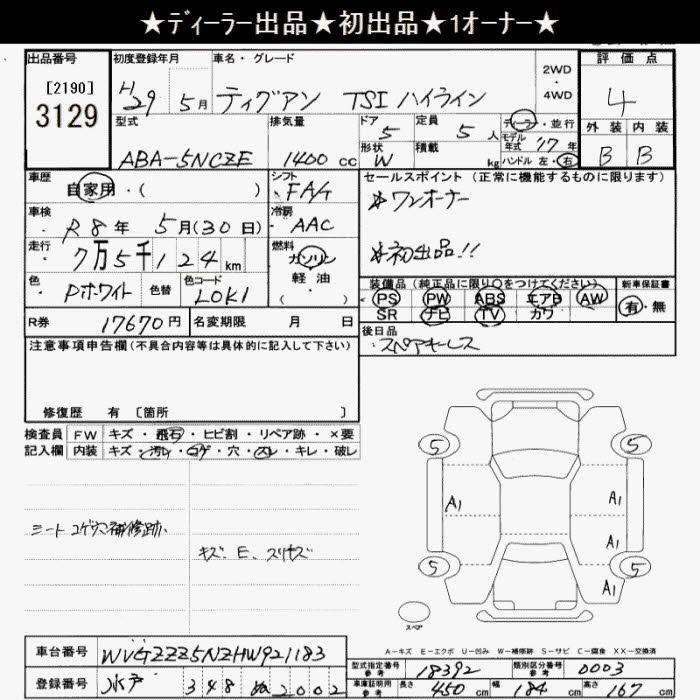 ★ディーラー出品★初出品★1オーナー★
出品番号 初度登録年月 車名・グレード 2WD 4WD 評価点
[2190]
3129
H29 5月 ティグアン TSI ハイライン 4
型式 排気量 ドア 5 定員 5人 ディーラー・並行 外装 内装
モデル年式 17年
ABA-5NCZE 1400cc 形状 W 積載 kg ハンドル 左・右 B B
車歴 シフト セールスポイント (正常に機能するものに限ります)
自家用・( ) FA/4 *ワンオーナー
車検 R8年 5月(30日) 冷房 AAC
走行 7万5千124km 燃料 ガソリン 軽・油 ・( ) *初出品!!
色 Pホワイト 色替 色コード LOK1 装備品 (純正品に限り○をつけてください) 新車保証書
PS PW ABS エアB AW 有・無
R券 17670円 名変期限 月 日 SR ナビ TV カワ
注意事項申告欄(不具合内容等は具体的に記入して下さい) 後日品
スペアキーレス
修復歴 有 [箇所 ]
検査員 FW キズ・飛石・ヒビ割・リペア跡・×要
記入欄 内装 キズ・汚レ・コゲ・穴・スレ・キレ・破レ
5 5
A1 A1
シート コゲ穴補修跡
キズ、E、スリキズ
A1
5 5
A1
スペア
A-キズ E-エクボ U-凹み W-補修跡 S-サビ C-腐食 XX-交換済
車台番号 WVGZZZ5NZHW921183 型式指定番号 参考 18392 類別区分番号 参考 0003
登録番号 水戸 348 ぬ 2002 車庫証明用 参考 長さ 450cm 幅 184cm 高さ 167cm